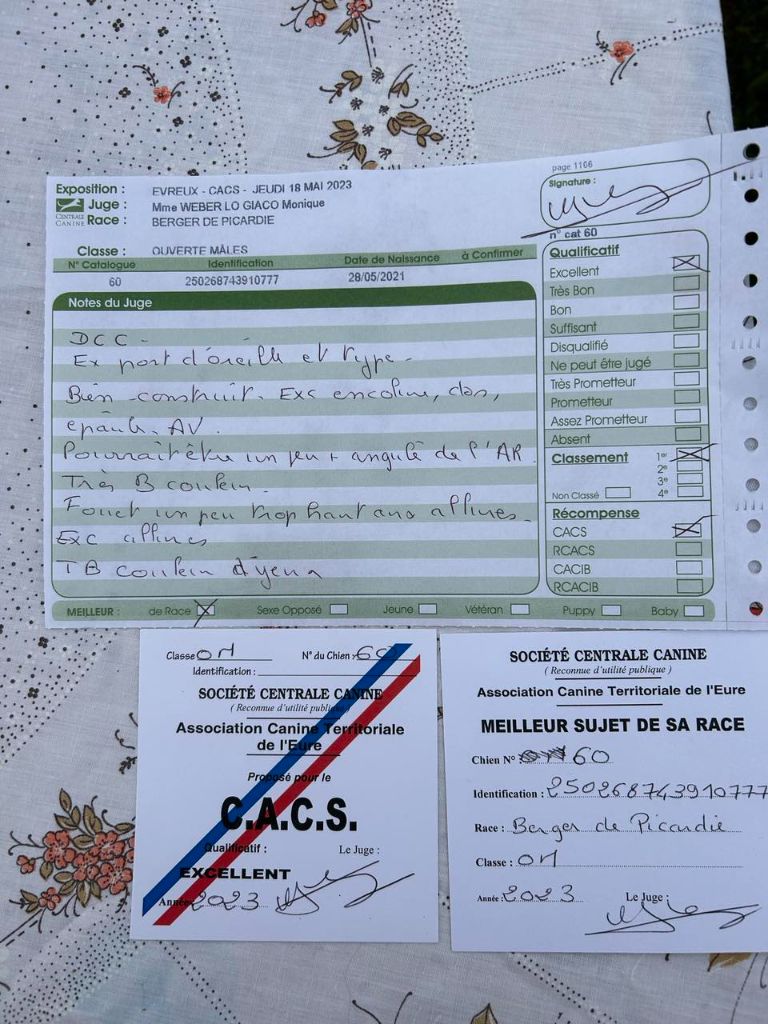 page 1166
Exposition : EVREUX - CACS - JEUDI 18 MAI 2023
Juge : Mme WEBER LO GIACO Monique
CENTRALE CANINE
Race : BERGER DE PICARDIE
Signature :
n° cat 60
Classe : OUVERTE MÂLES
N° Catalogue Identification Date de Naissance à Confirmer
60 250268743910777 28/05/2021
Notes du Juge
DCC -
Ex port d'oreille et type -
Bien construit. Exc encolure, dos,
épaule. AV.
Pourrait être un peu + angulé de l'AR.
Très B couleur.
Fouet un peu trop haut aux allures.
Exc allures
TB couleur d'yeux
Qualificatif
Excellent
Très Bon
Bon
Suffisant
Disqualifié
Ne peut être jugé
Très Prometteur
Prometteur
Assez Prometteur
Absent
Classement 1er
2e
3e
Non Classé 4e
Récompense
CACS
RCACS
CACIB
RCACIB
MEILLEUR : de Race Sexe Opposé Jeune Vétéran Puppy Baby
Classe OM N° du Chien : 60
Identification :
SOCIÉTÉ CENTRALE CANINE
( Reconnue d'utilité publique )
Association Canine Territoriale
de l'Eure
Proposé pour le
C.A.C.S.
Qualificatif : Le Juge :
EXCELLENT
Année 2023
SOCIÉTÉ CENTRALE CANINE
( Reconnue d'utilité publique )
Association Canine Territoriale de l'Eure
MEILLEUR SUJET DE SA RACE
Chien N° : 60
Identification : 250268743910777
Race : Berger de Picardie
Classe : OM
Année : 2023 Le Juge :